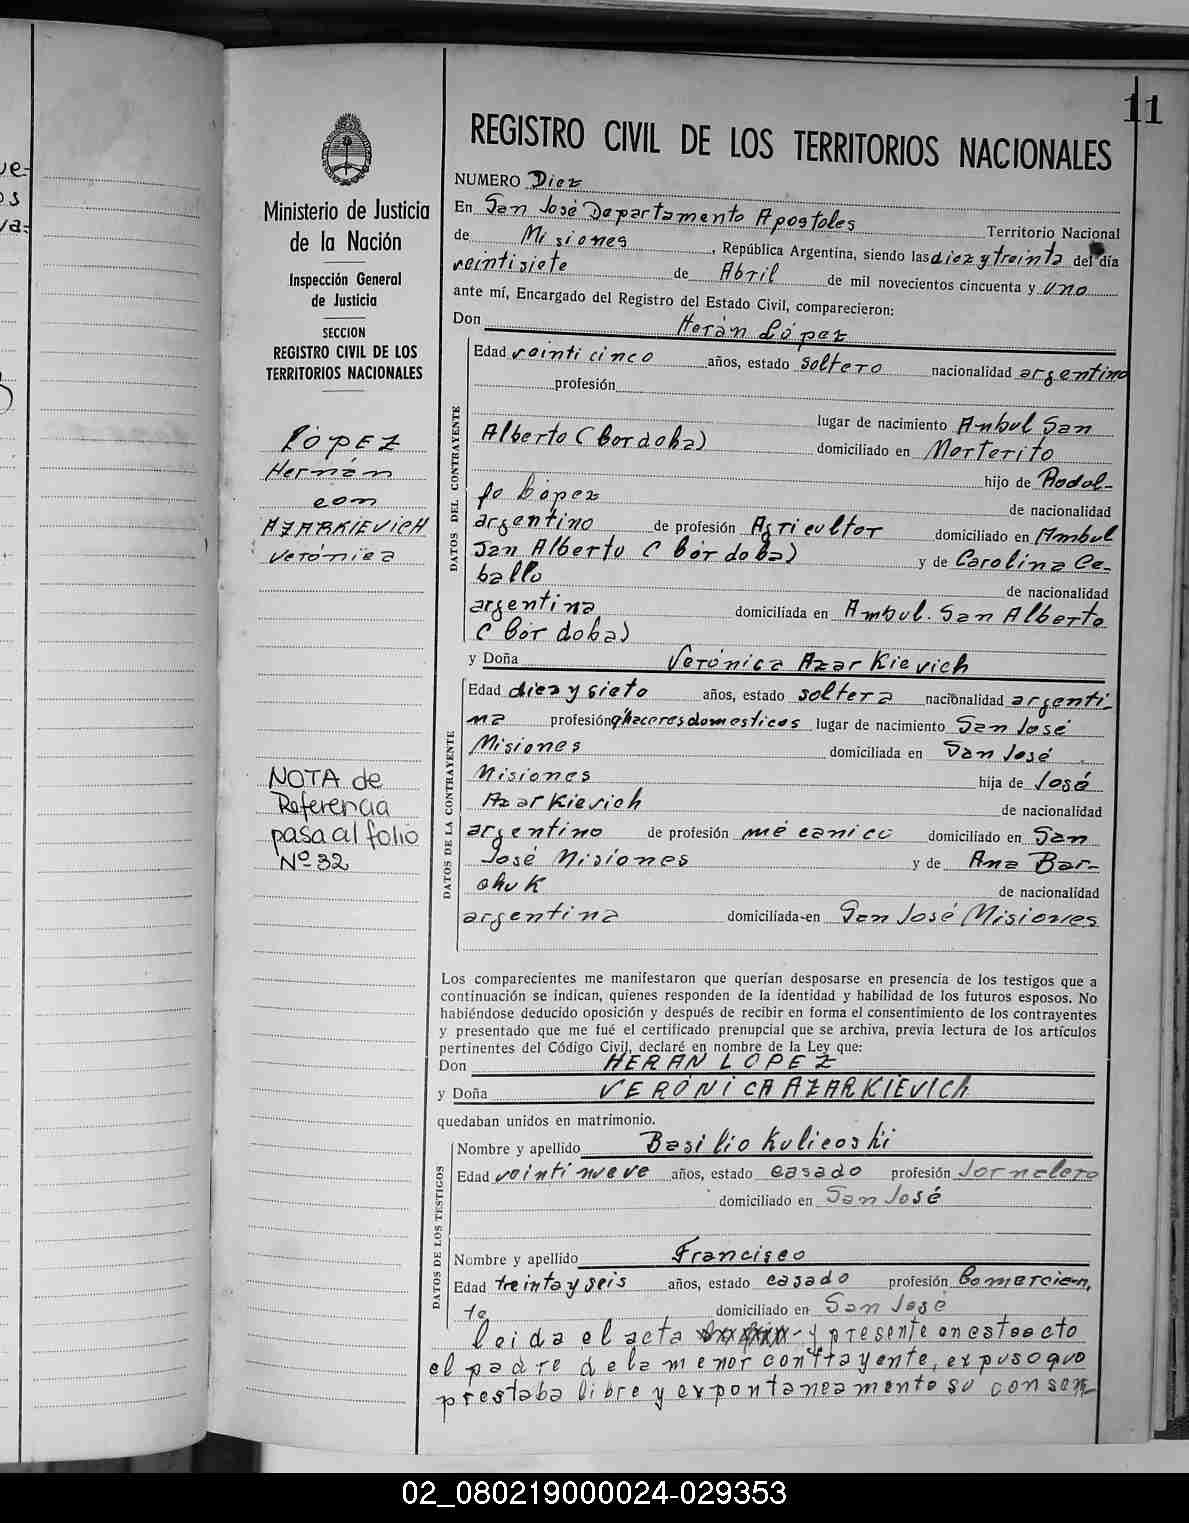 11
REGISTRO CIVIL DE LOS TERRITORIOS NACIONALES
NUMERO Diez
En San José Departamento Apostoles Territorio Nacional
de Misiones, República Argentina, siendo las diez y treinta del día
veintisiete de Abril de mil novecientos cincuenta y uno
ante mí, Encargado del Registro del Estado Civil, comparecieron:
Don Herán López
Edad veinticinco años, estado soltero nacionalidad argentino
profesión
lugar de nacimiento Ambul San
Alberto (Cordoba) domiciliado en Morterito
hijo de Rodol-
fo López de nacionalidad
argentino de profesión Agricultor domiciliado en Ambul
San Alberto (Córdoba) y de Carolina Ce-
ballo de nacionalidad
argentina domiciliada en Ambul. San Alberto
(Córdoba)
y Doña Verónica Azarkievich
Edad diez y siete años, estado soltera nacionalidad argenti-
na profesión q'haceres domesticos lugar de nacimiento San José
Misiones domiciliada en San José
Misiones hija de José
Azarkievich de nacionalidad
argentino de profesión mécanico domiciliado en San
José Misiones y de Ana Bar-
chuk de nacionalidad
argentina domiciliada en San José Misiones
DATOS DEL CONTRAYENTE
DATOS DE LA CONTRAYENTE
Los comparecientes me manifestaron que querían desposarse en presencia de los testigos que a
continuación se indican, quienes responden de la identidad y habilidad de los futuros esposos. No
habiéndose deducido oposición y después de recibir en forma el consentimiento de los contrayentes
y presentado que me fué el certificado prenupcial que se archiva, previa lectura de los artículos
pertinentes del Código Civil, declaré en nombre de la Ley que:
Don HERAN LOPEZ
y Doña VERÓNICA AZARKIEVICH
quedaban unidos en matrimonio.
Nombre y apellido Basilio Kulicoski
Edad veintinueve años, estado casado profesión Jornalero
domiciliado en San José
Nombre y apellido Francisco
Edad treinta y seis años, estado casado profesión Comercian,
te domiciliado en San José
DATOS DE LOS TESTIGOS
leida el acta y presente en este acto
el padre de la menor contrayente, expuso que
prestaba libre y expontaneamente su consen-
Ministerio de Justicia
de la Nación
Inspección General
de Justicia
SECCION
REGISTRO CIVIL DE LOS
TERRITORIOS NACIONALES
LÓPEZ
Hernán
con
AZARKIEVICH
Verónica
NOTA de
Referencia
pasa al folio
Nº 32
02_080219000024-029353